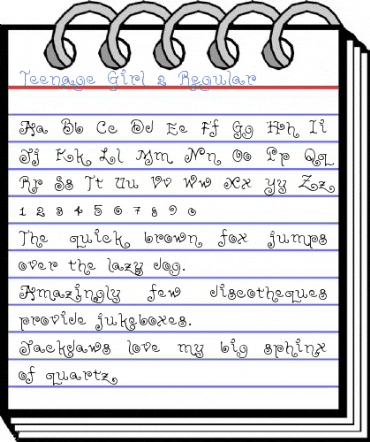 Teenage Girl 2 Regular
Aa Bb Cc Dd Ee Ff Gg Hh Ii
Jj Kk Ll Mm Nn Oo Pp Qq
Rr Ss Tt Uu Vv Ww Xx Yy Zz
1 2 3 4 5 6 7 8 9 0
The quick brown fox jumps
over the lazy dog.
Amazingly few discotheques
provide jukeboxes.
Jackdaws love my big sphinx
of quartz